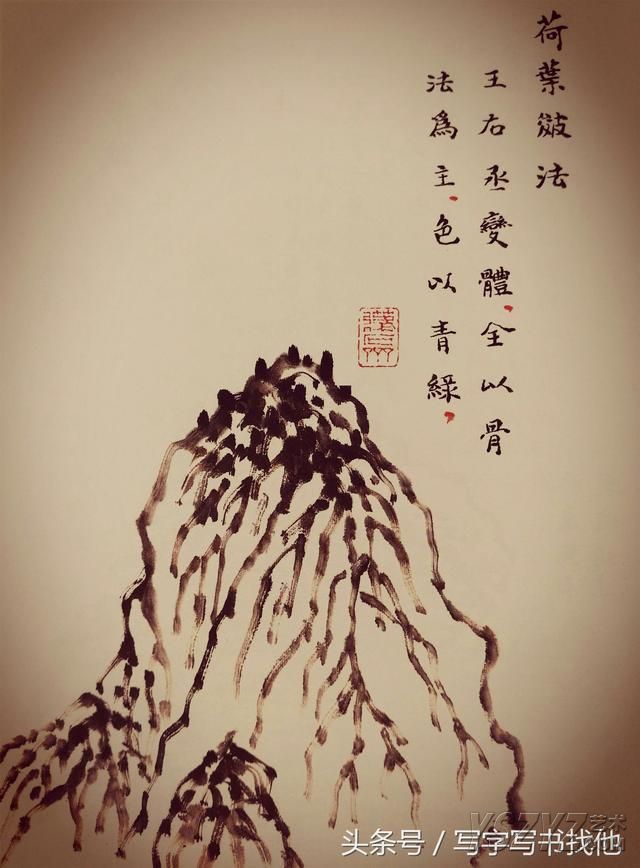 荷葉皴法
王右丞變體，全以骨
法為主，色以青綠，
头条号 / 写字写书找他